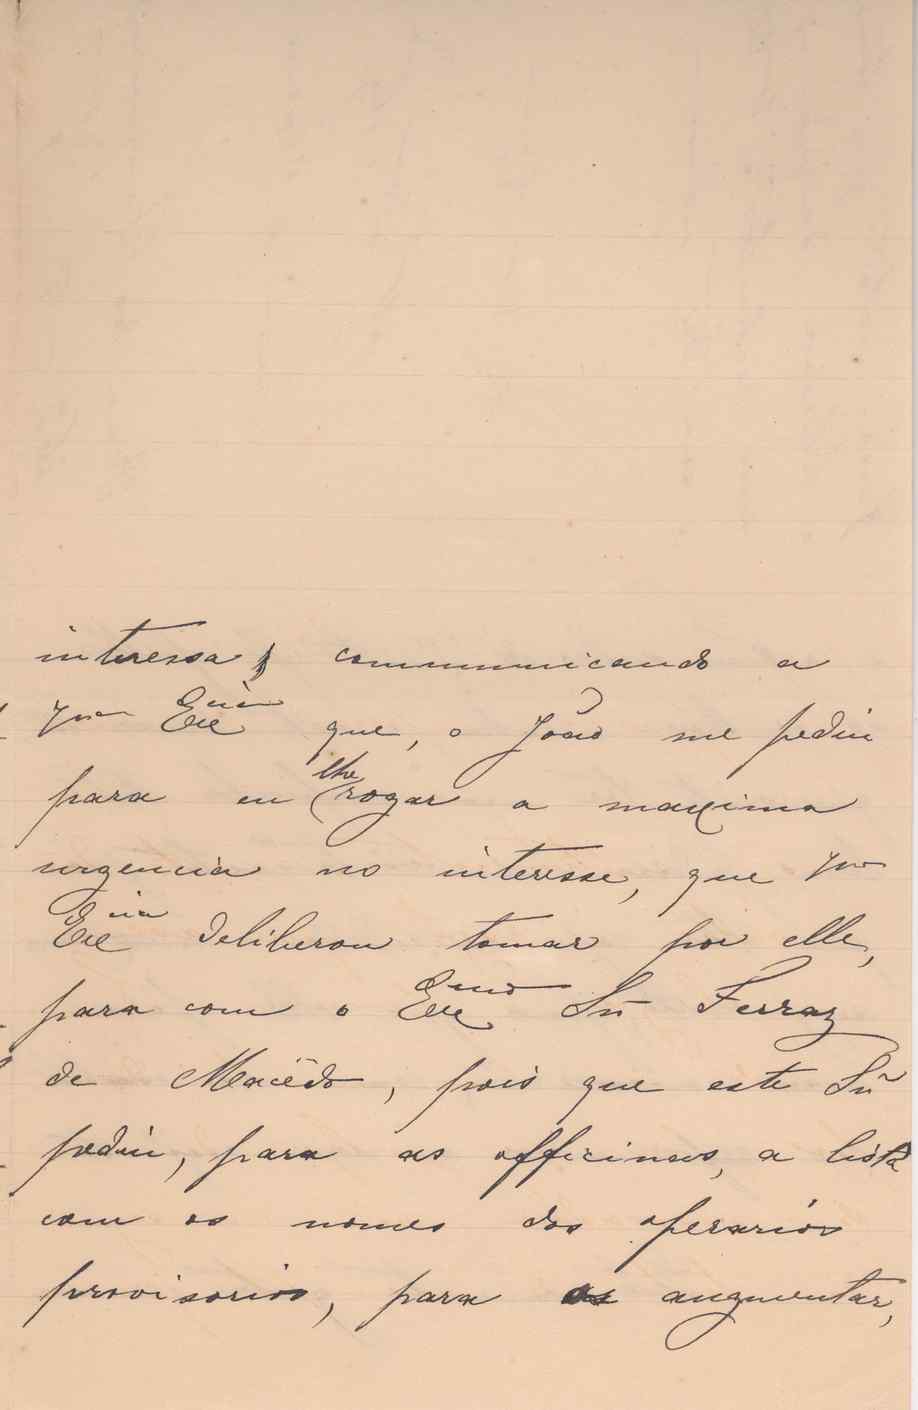 interessa, communicando a
Vª Excia que, o João me pediu
para eu lhe rogar a maxima
urgencia no interesse, que Vª
Excia deliberou tomar por elle,
para com o Exmo Snr Ferraz
de Macêdo, pois que este Snr
pediu, para as officinas, a lista
com os nomes dos operarios
provisorios, para os augmentar,